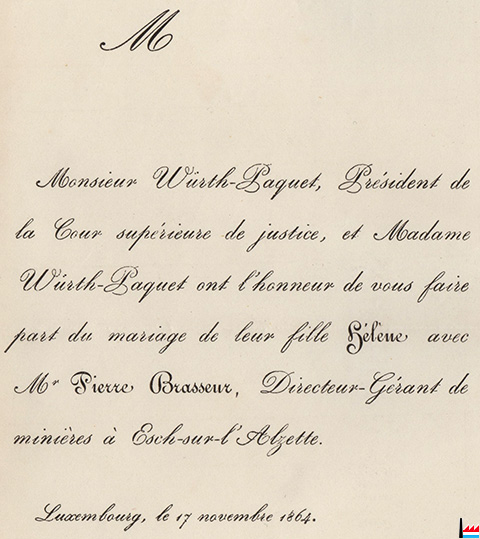 M
Monsieur Würth-Paquet, Président de
la Cour supérieure de justice, et Madame
Würth-Paquet ont l'honneur de vous faire
part du mariage de leur fille Hélène avec
Mr Pierre Brasseur, Directeur-Gérant de
minières à Esch-sur-l'Alzette.
Luxembourg, le 17 novembre 1864.